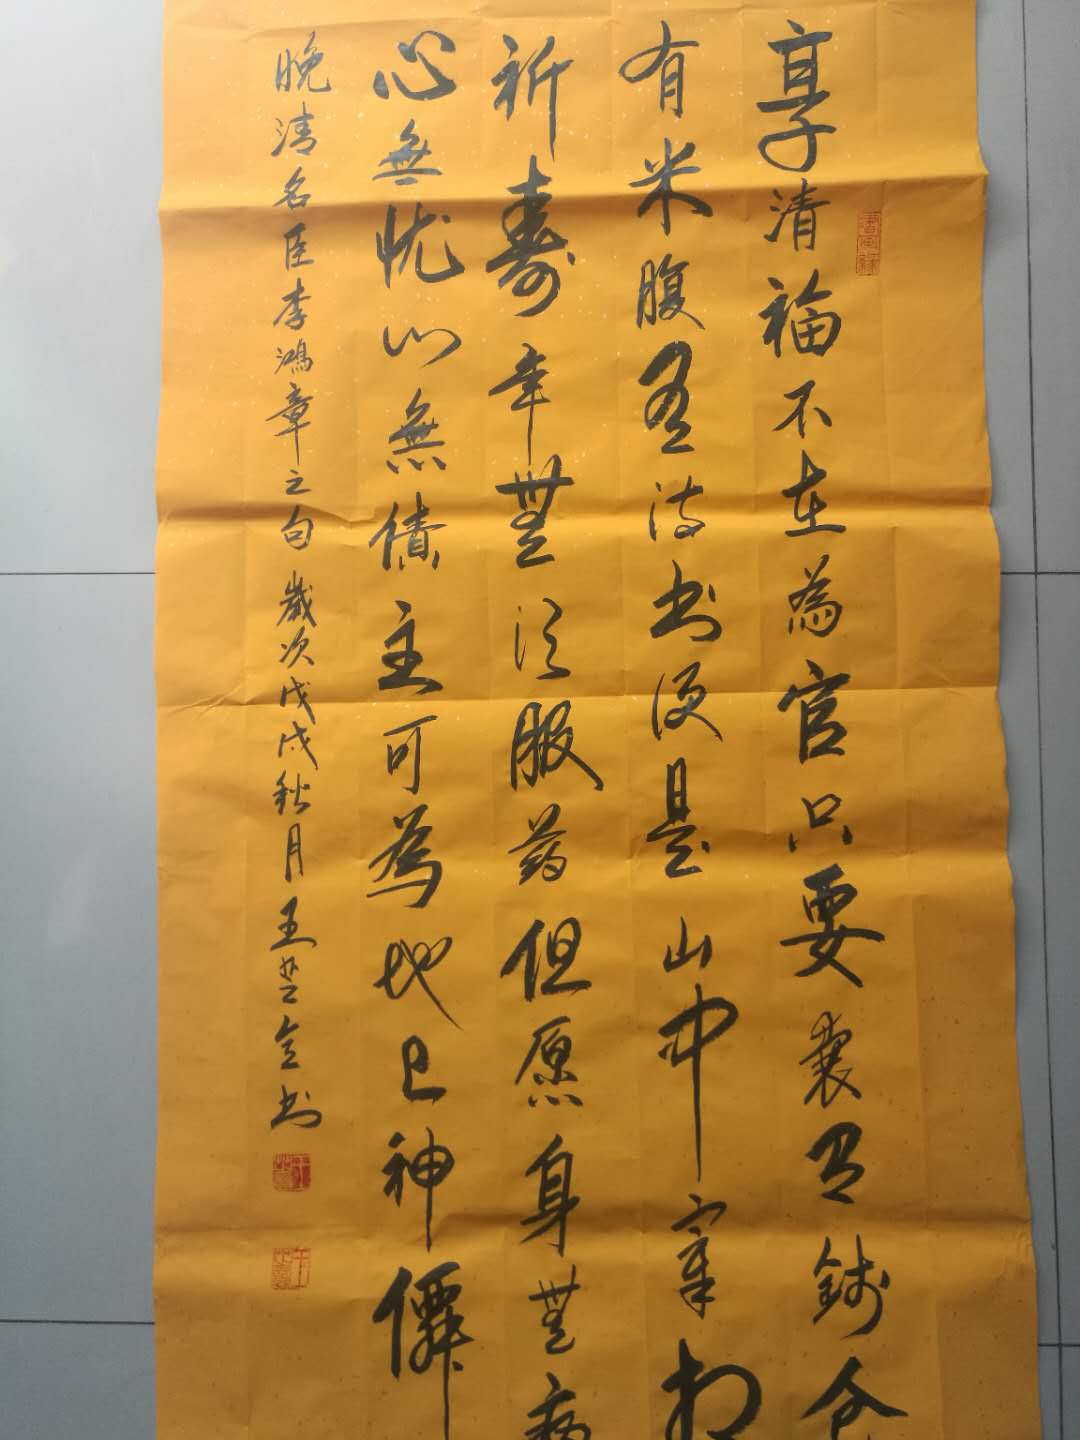 享清福不在為官只要囊有錢仓
有米腹有诗书便是山中宰相
祈寿年無须服药但愿身無病
心無忧门無債主可為地上神僊
晚清名臣李鴻章之句 歲次戊戌秋月王 书